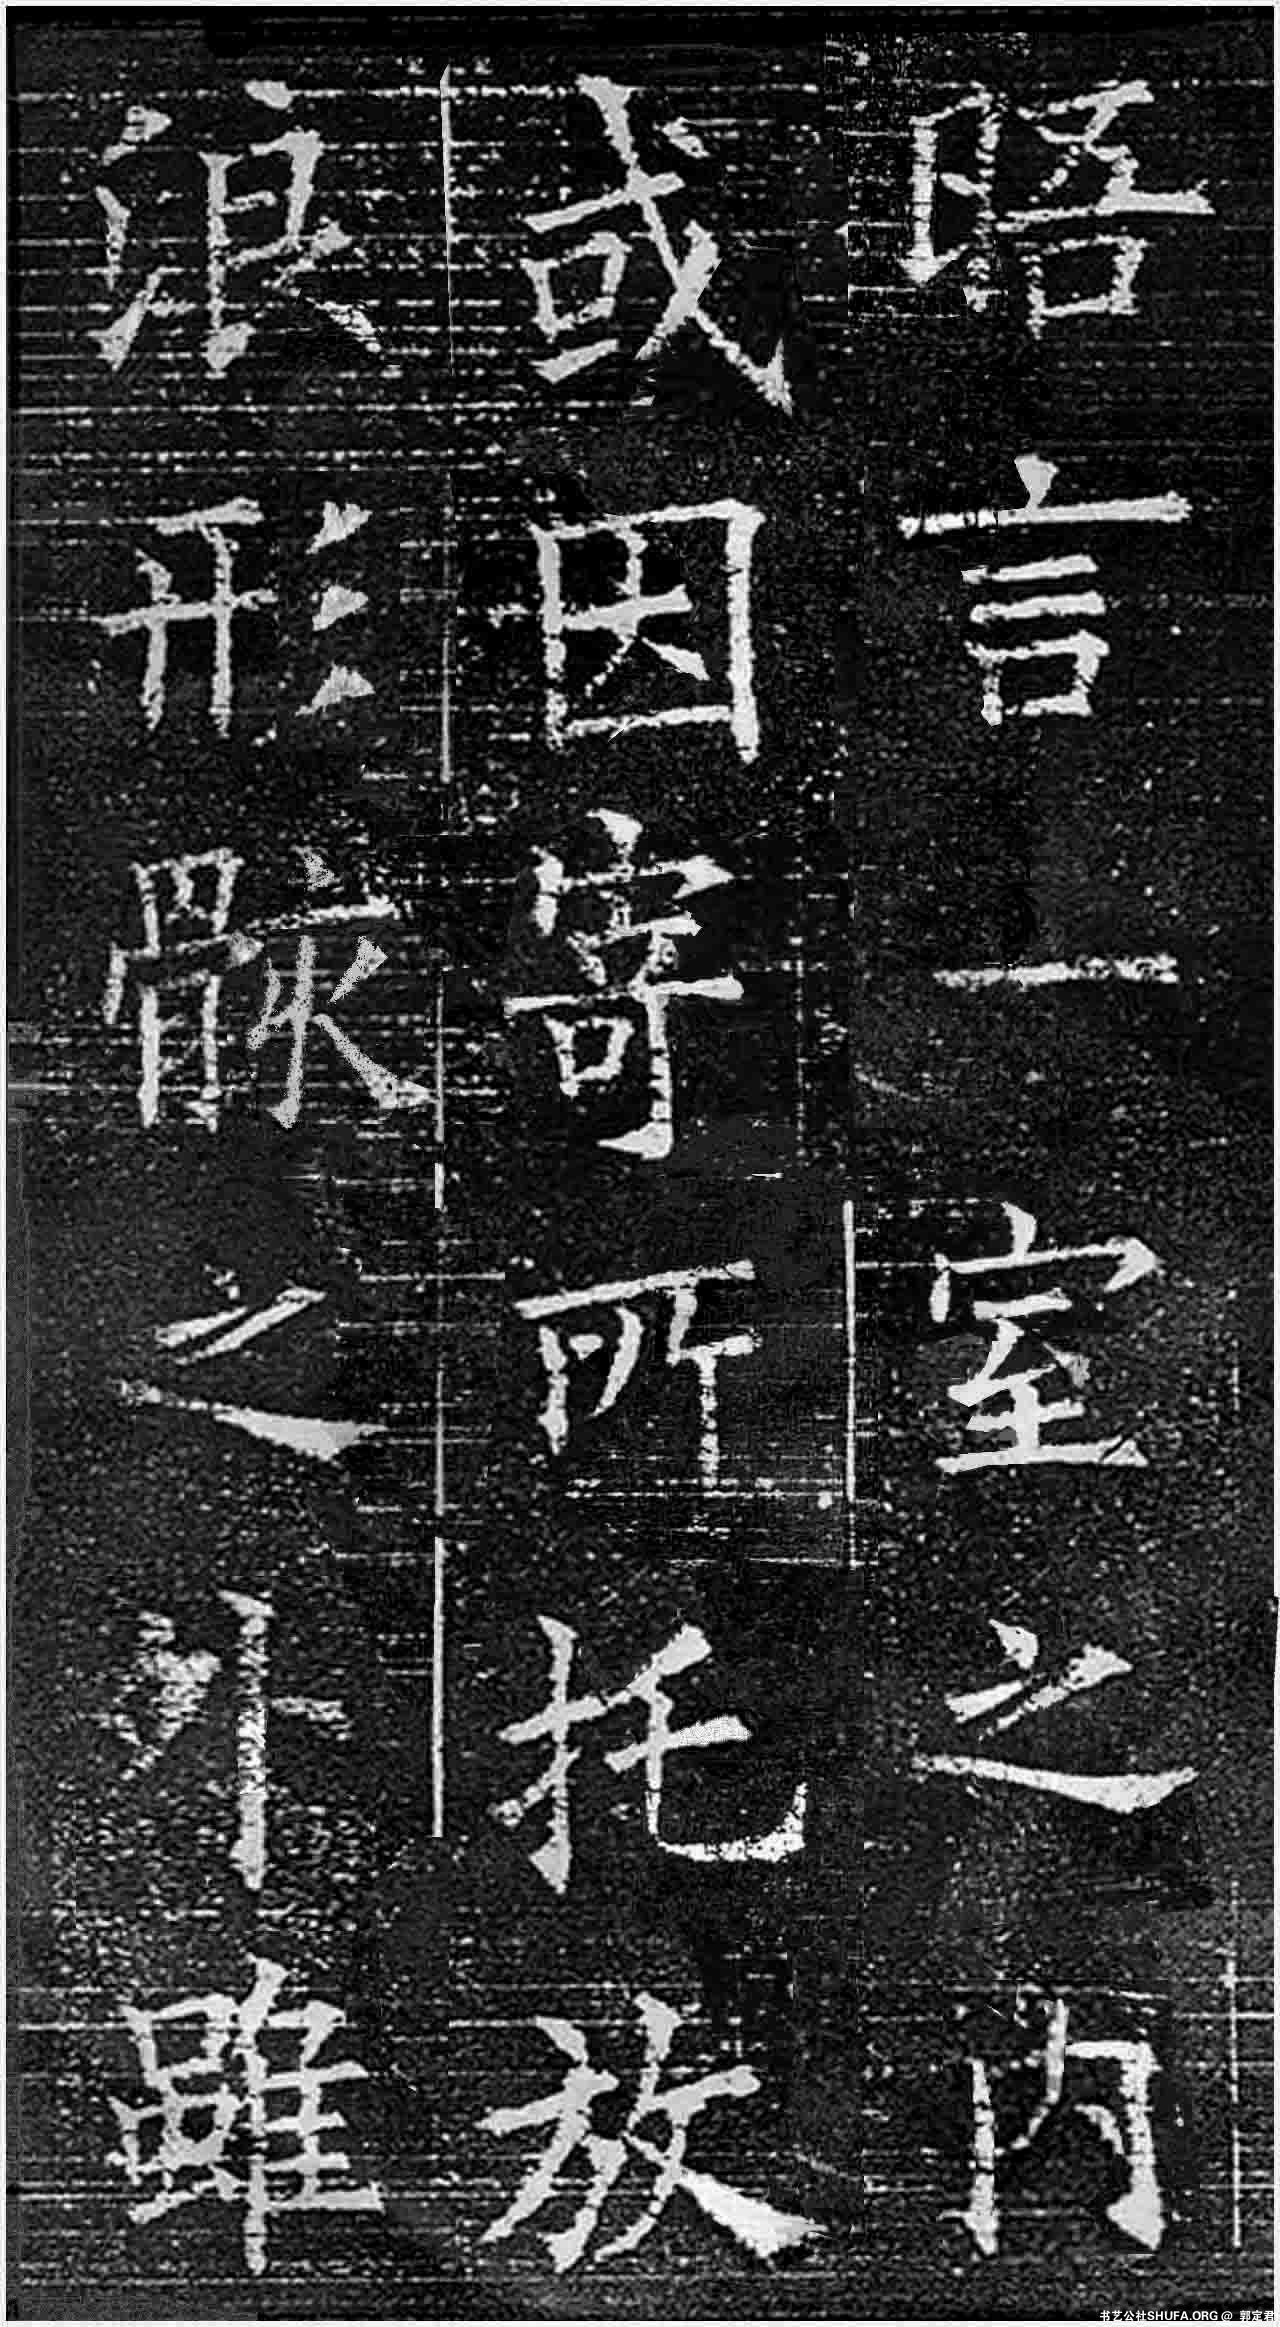 晤言一室之内
或因寄所托放
浪形骸之外雖
书艺公社SHUFA.ORG @ 郭定君